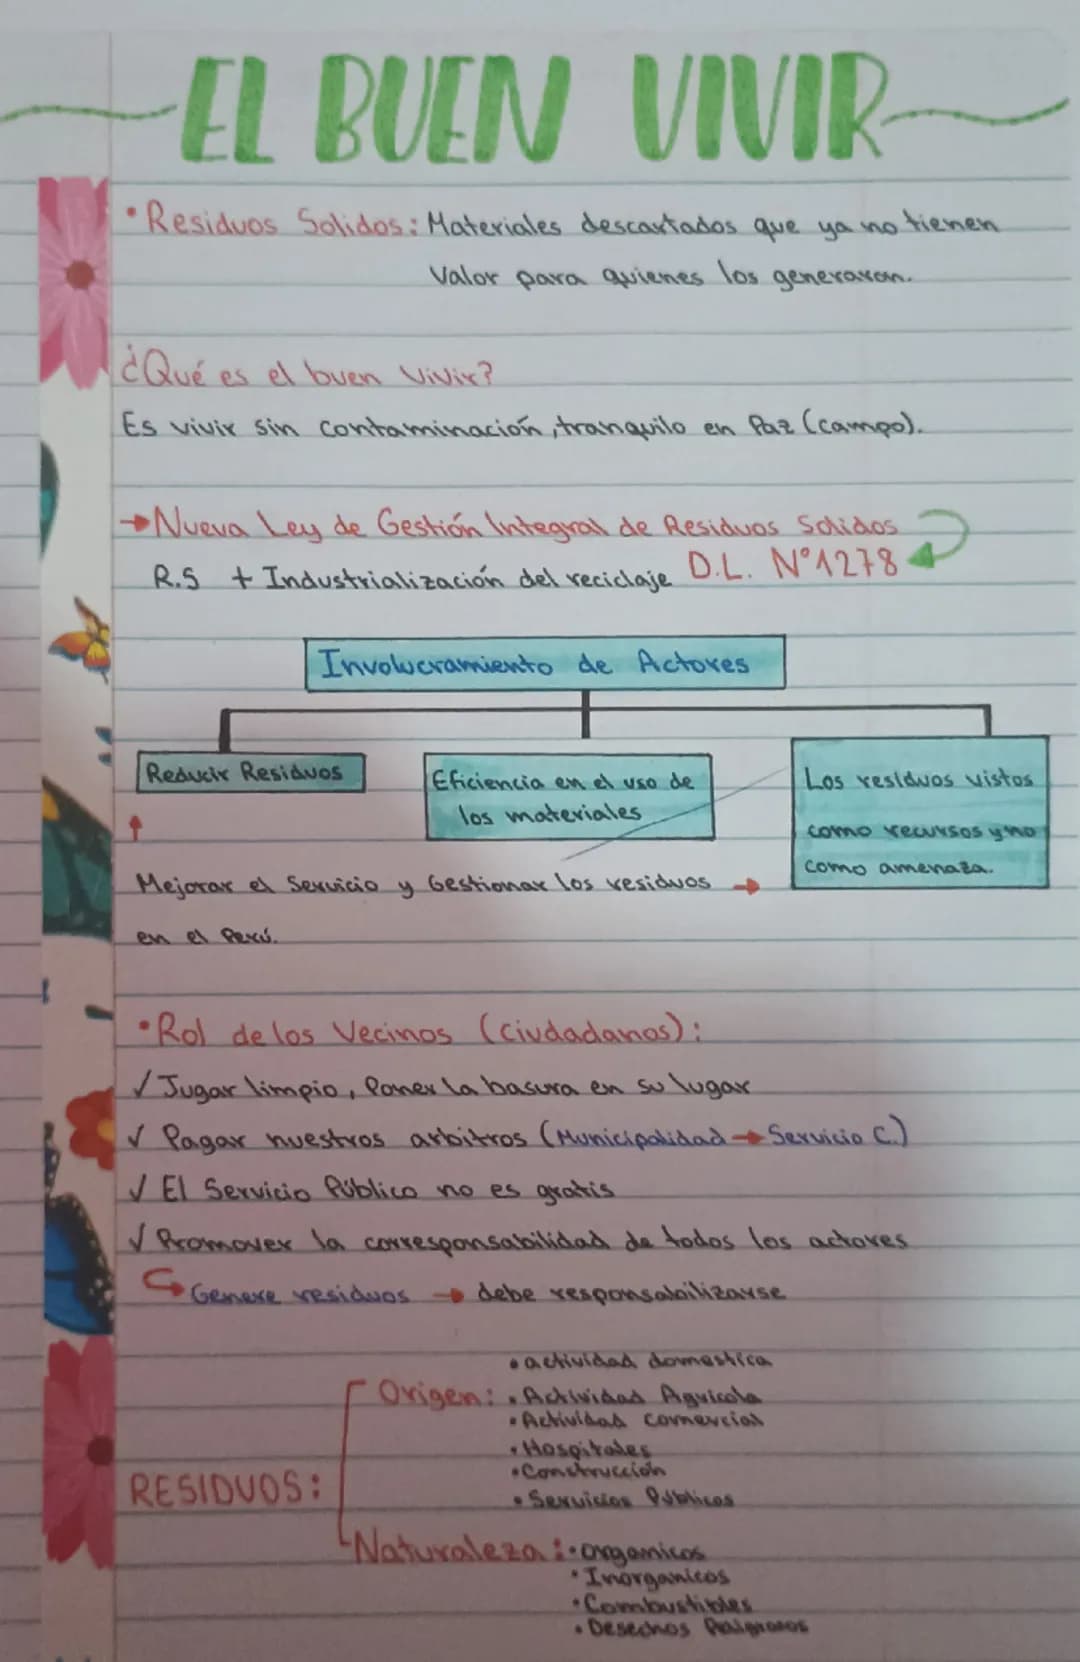 EL BUEN VIVIR
• Residuos Solidos: Materiales descartados que ya no tienen
Valor para quienes los generaron.
¿Qué es el buen vivir?
Es vivir sin contaminación, tranquilo en Paz (campo).
→ Nueva Ley de Gestión Integral de Residuos Solidos
R.S + Industrialización del reciclaje D.L. N°1278
Involucramiento de Actores
Reducir Residuos
Eficiencia en el uso de
los materiales
Los residuos vistos
como recursos y no
como amenaza.
Mejorar el Servicio y Gestionar los residuos →
en el Perú.
• Rol de los Vecinos (ciudadanos):
✓ Jugar limpio, Poner la basura en su lugar
✓ Pagar nuestros arbitros (Municipalidad → Servicio C.)
✓ El Servicio Público no es gratis
✓ Promover la corresponsabilidad de todos los actores
Genere residuos → debe responsabilizarse
RESIDUOS:
Origen: • actividad domestica
• Actividad Agricola
• Actividad comercial
• Hospitales
• Construcción
• Servicios Públicos
Naturaleza: • organicos
• Inorganicos
• Combustibles
• Desechos Peligrosos